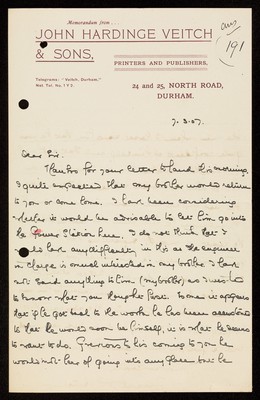 Memorandum from ...
JOHN HARDINGE VEITCH
& SONS,
ans
191
PRINTERS AND PUBLISHERS,
Telegrams: "Veitch, Durham."
Nat Tel. No. 192.
24 and 25, NORTH ROAD,
DURHAM.
7. 3. 07.
Dear Sir.
Thanks for your letter to hand this morning,
I quite expected that my brother would return
to you or come home. I have been considering
whether it would be advisable to let him go into
the Power Station here. I do not think that I
would have any difficulty in this as the engineer
in charge is much interested in my brother. I have
not said anything to him (my brother) as I wished
to know what you thought first. To me it appears
that if he got back to the work he has been accustomed
to that he would soon be himself, it is what he seems
to want to do. Previous to his coming to you he
would not hear of going into any place but he